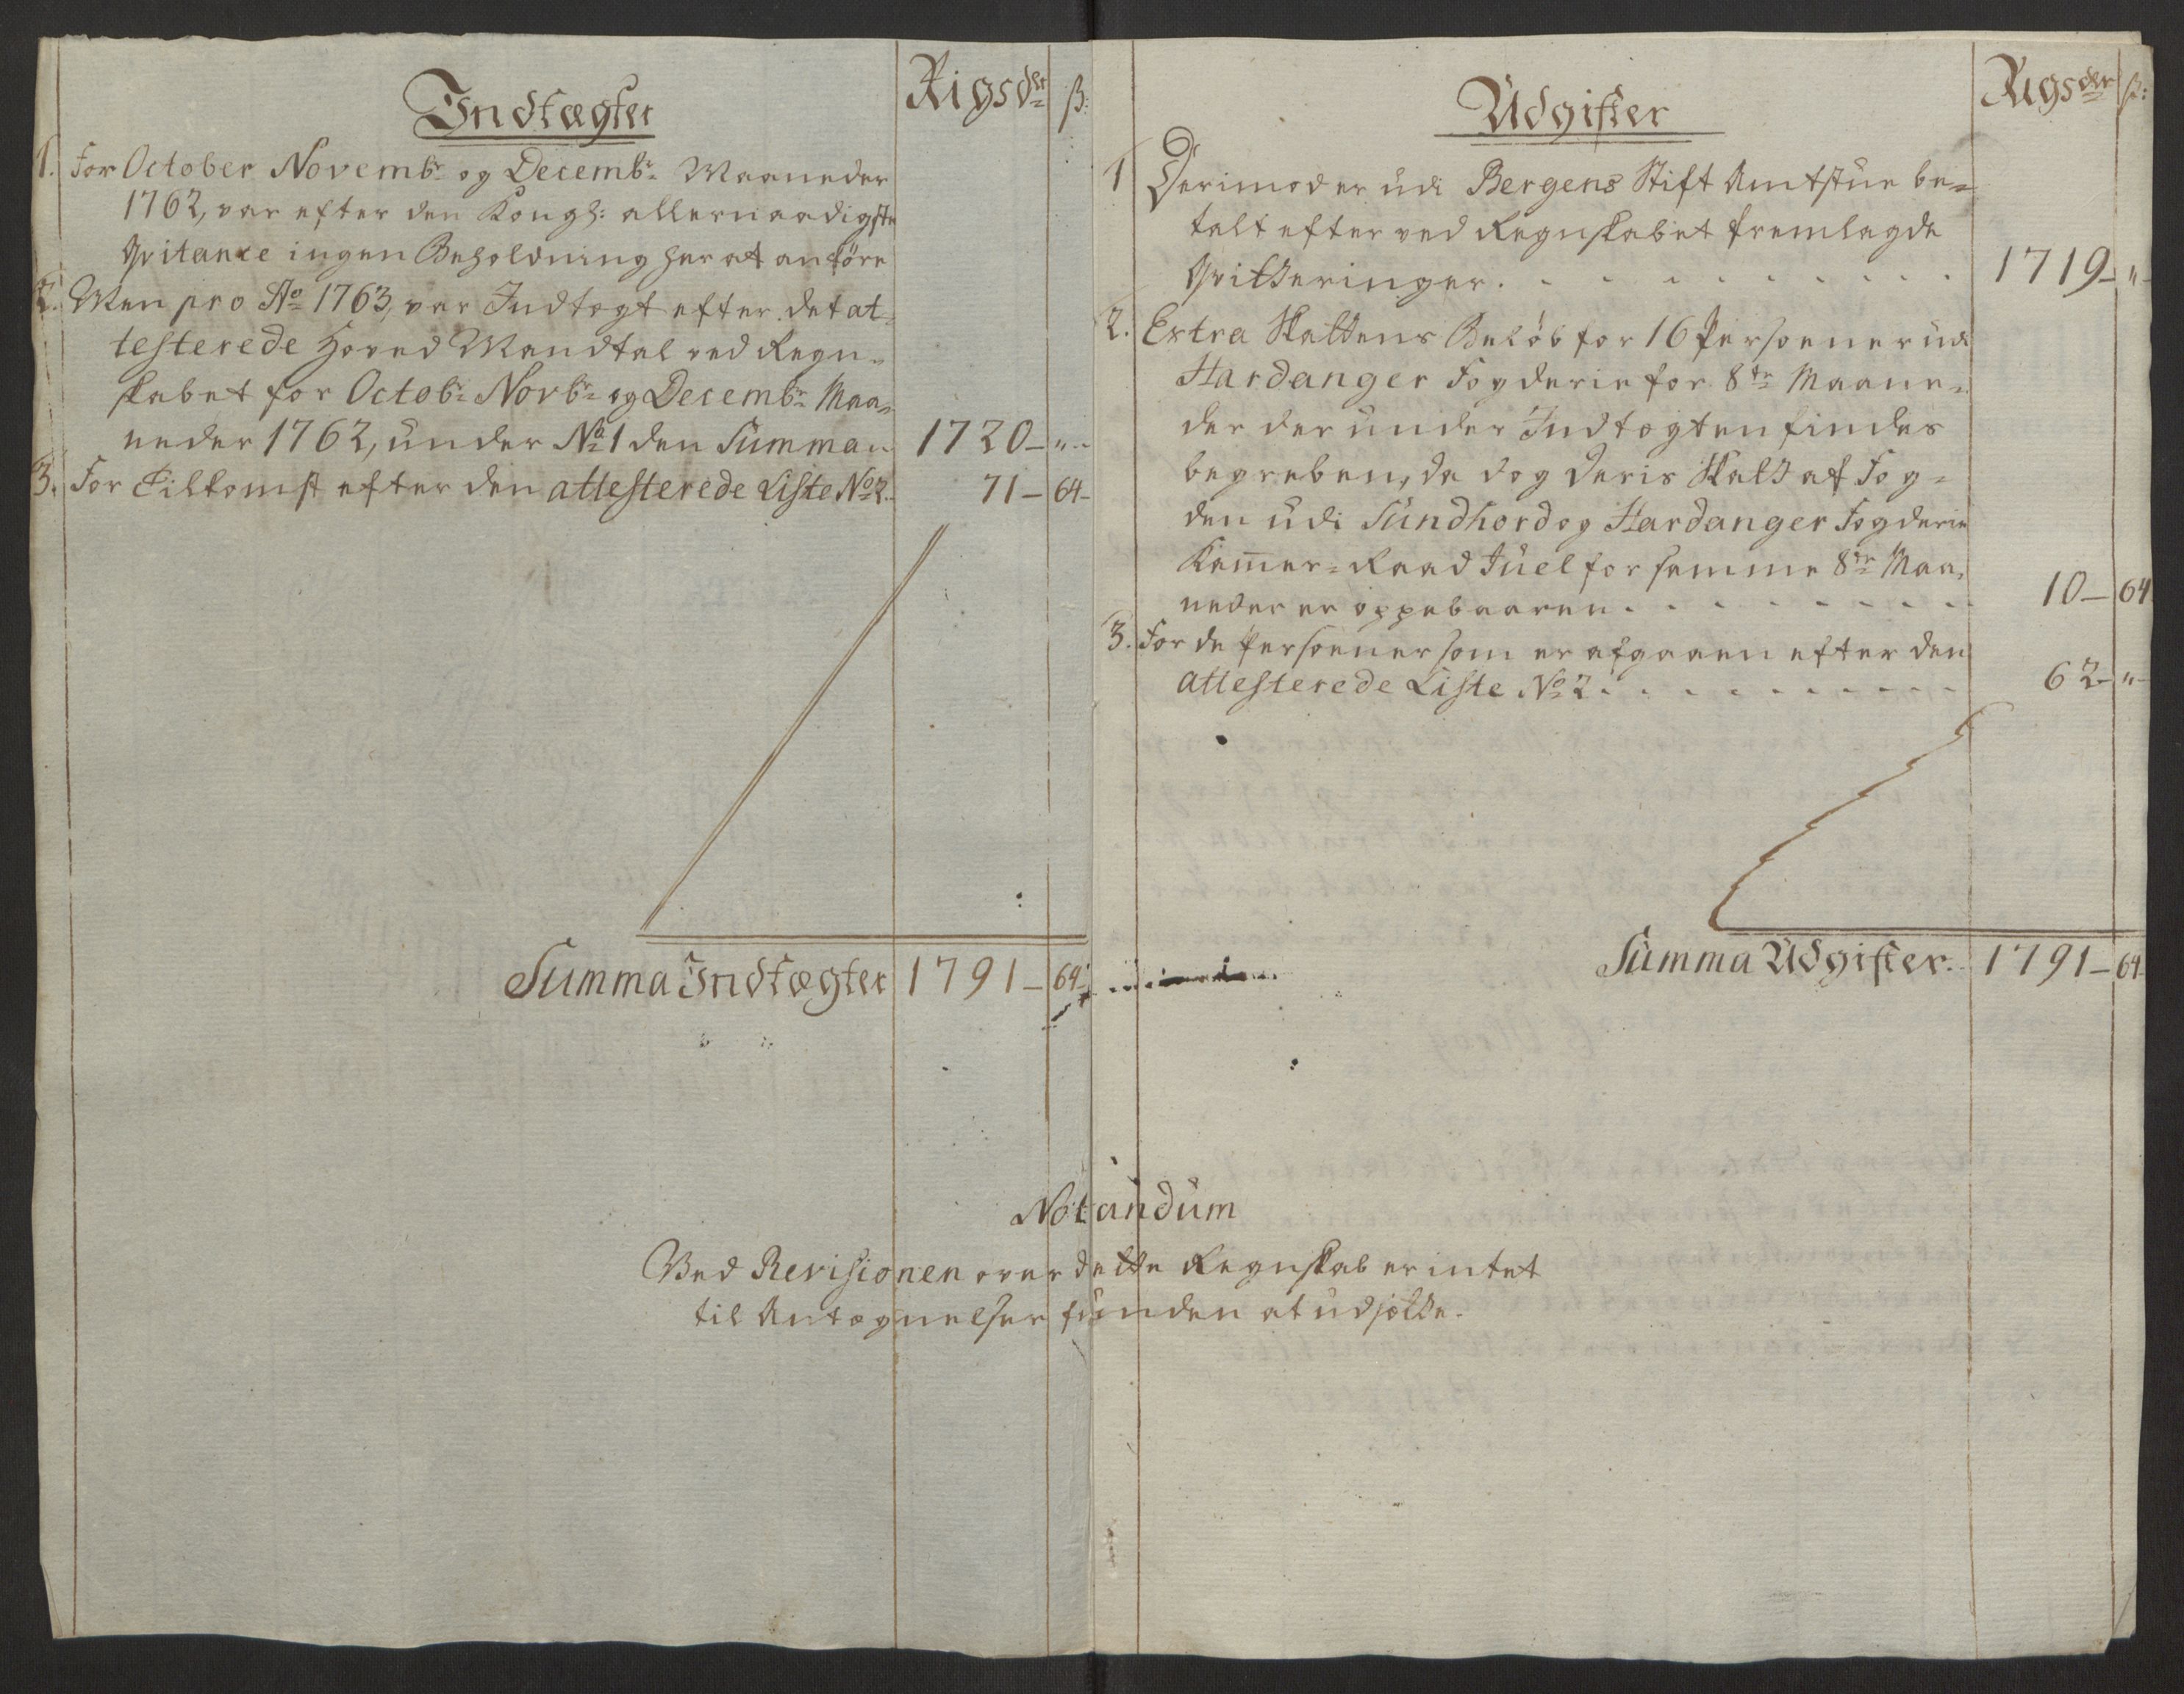 Indtægter
Rigsdlr ß:
1. For October Novembr og Decembr Maaneder
1762, var efter den Kongl: allernaadigste
Qvitance ingen Beholdning her at anføre
2. Men pro Ao 1763, var Indtægt efter det at-
testerede Hoved Mandtal ved Regn-
skabet for Octobr Novbr og Decembr Maa-
neder 1762, under No 1 den Summa 1720 - " -
3. For Tilkomst efter den attesterede Liste No 2. 71 - 64 -
Summa Indtægter 1791 - 64
Udgifter
Rigsdlr ß:
1 Derimod er udi Bergens Stift Amtstue be-
talt efter ved Regnskabet fremlagde
Qvitteringer. 1719 - " -
2. Extra Skattens Beløb for 16 Persoener udi
Hardanger Fogderie for 8te Maane-
der der under Indtægten findes
begreben, da dog deris Skatt af Fog-
den udi Sundhord og Hardanger Fogderie
Kammer-Raad Juel for samme 8te Maa-
neder er oppebaaren. 10 - 64
3. For de Persoener som er afgaaen efter den
attesterede Liste No 2. 62 - " -
Summa Udgifter. 1791 - 64
Notandum
Ved Revisionen over dette Regnskab er intet
til Antegnelser funden at udsætte.